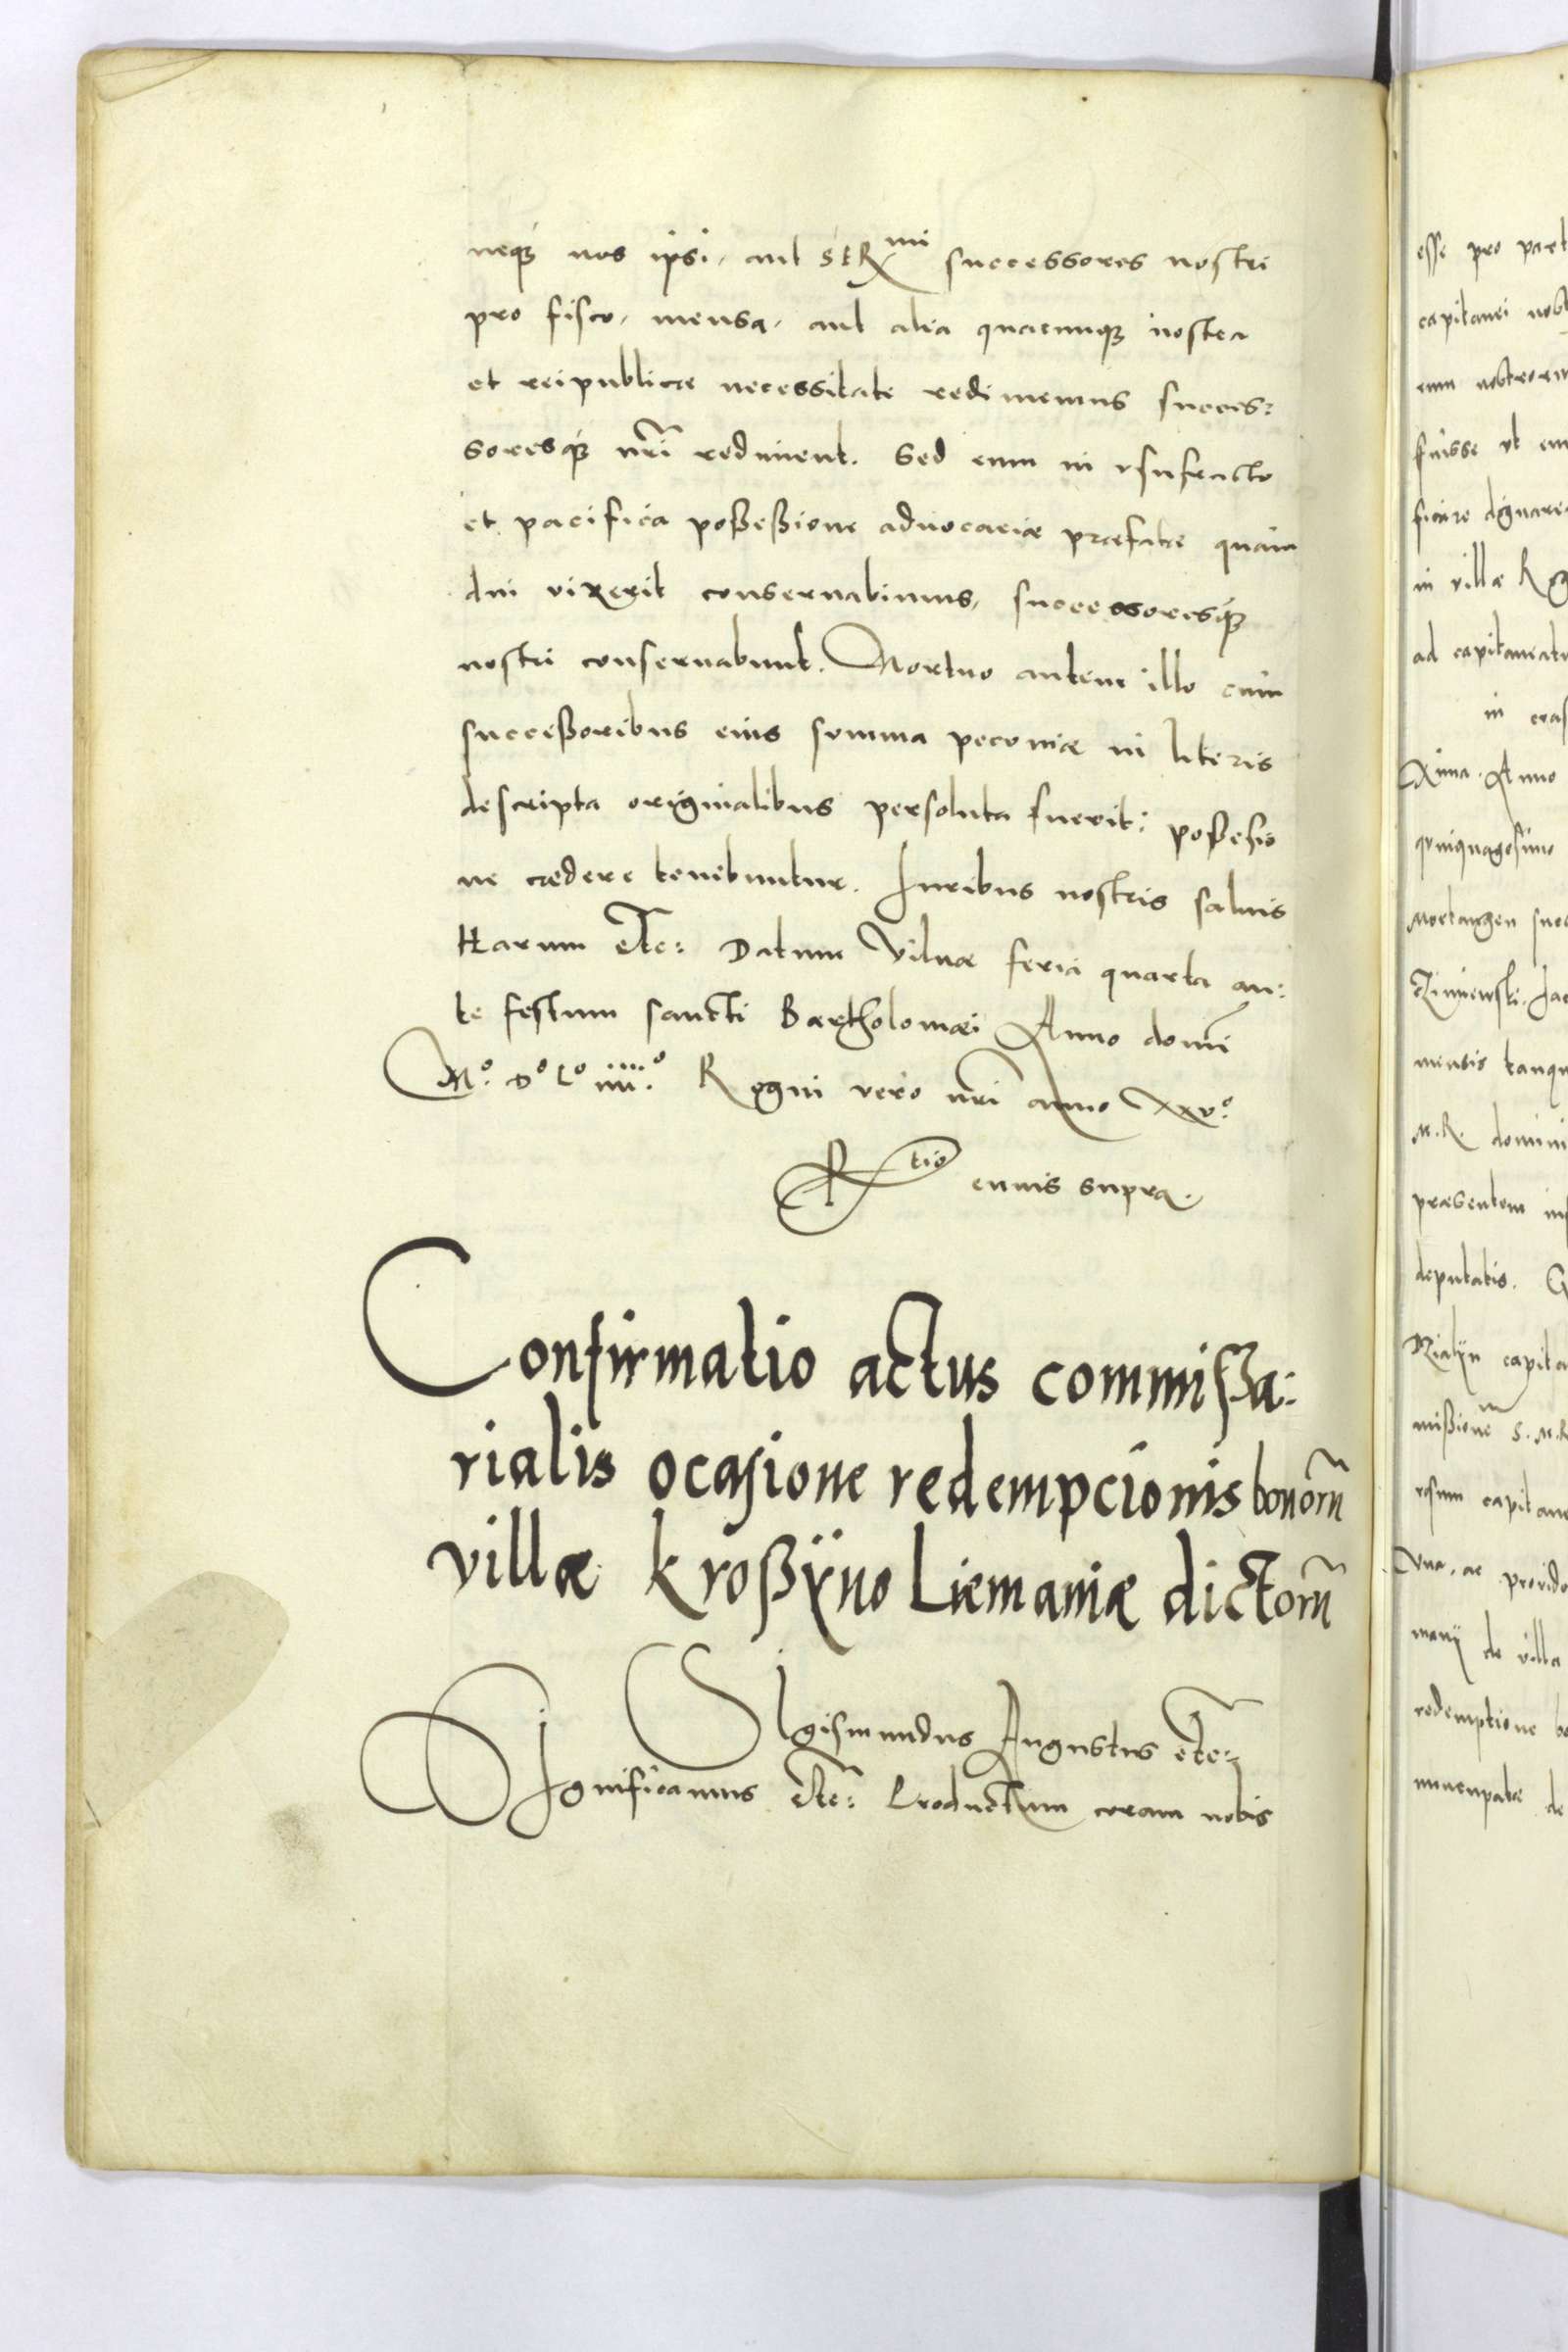 neq́ꝫ nos ipsi, aut SERmi successores nostri
pro fisco, mensa, aut alia quacumqꝫ nostra
et reipublicæ necessitate redimemus succes:
soresq́ꝫ nr̃i rediment. Sed eum in vsufructo
et pacifica poßeßione aduocaciæ præfatæ quam
diu vixerit conseruabimus, successoresq́ꝫ
nostri conseruabunt. Mortuo autem illo cum
succeßoribus eius somma pecuniæ in literis
descripta originalibus persoluta fuerit: poßeßio
ne cædere tenebuntur. Iuribus nostris saluis
Harum etc: Datum Vilnæ feria quarta an:
te festum sancti Bartholomæi Anno domi
Mº. Dº Lº iiiiº. Regni vero nr̃i anno xxvº.
Rtio cuius supra.
Confirmatio actus commißa:
rialis ocasione redempcionis bonorũ
villæ kroßÿno Liemaniæ dictorũ
SIgismundus Augustus etc:
SIgnificamus etc: Productum coram nobis
esse pro part
capitanei nob
eum nostrorum
fuisse vt
ficare dignare
in villa
ad capitaneatu
in cras
xima. Anno
quinquagesimo
mensis tanqu
M.R. domini
præsentem in
deputatis.
capita
mißione S.M.R
rsum capitane
Vna, ac prouido
manÿ de villa
redemptione bo
nuncupatæ de